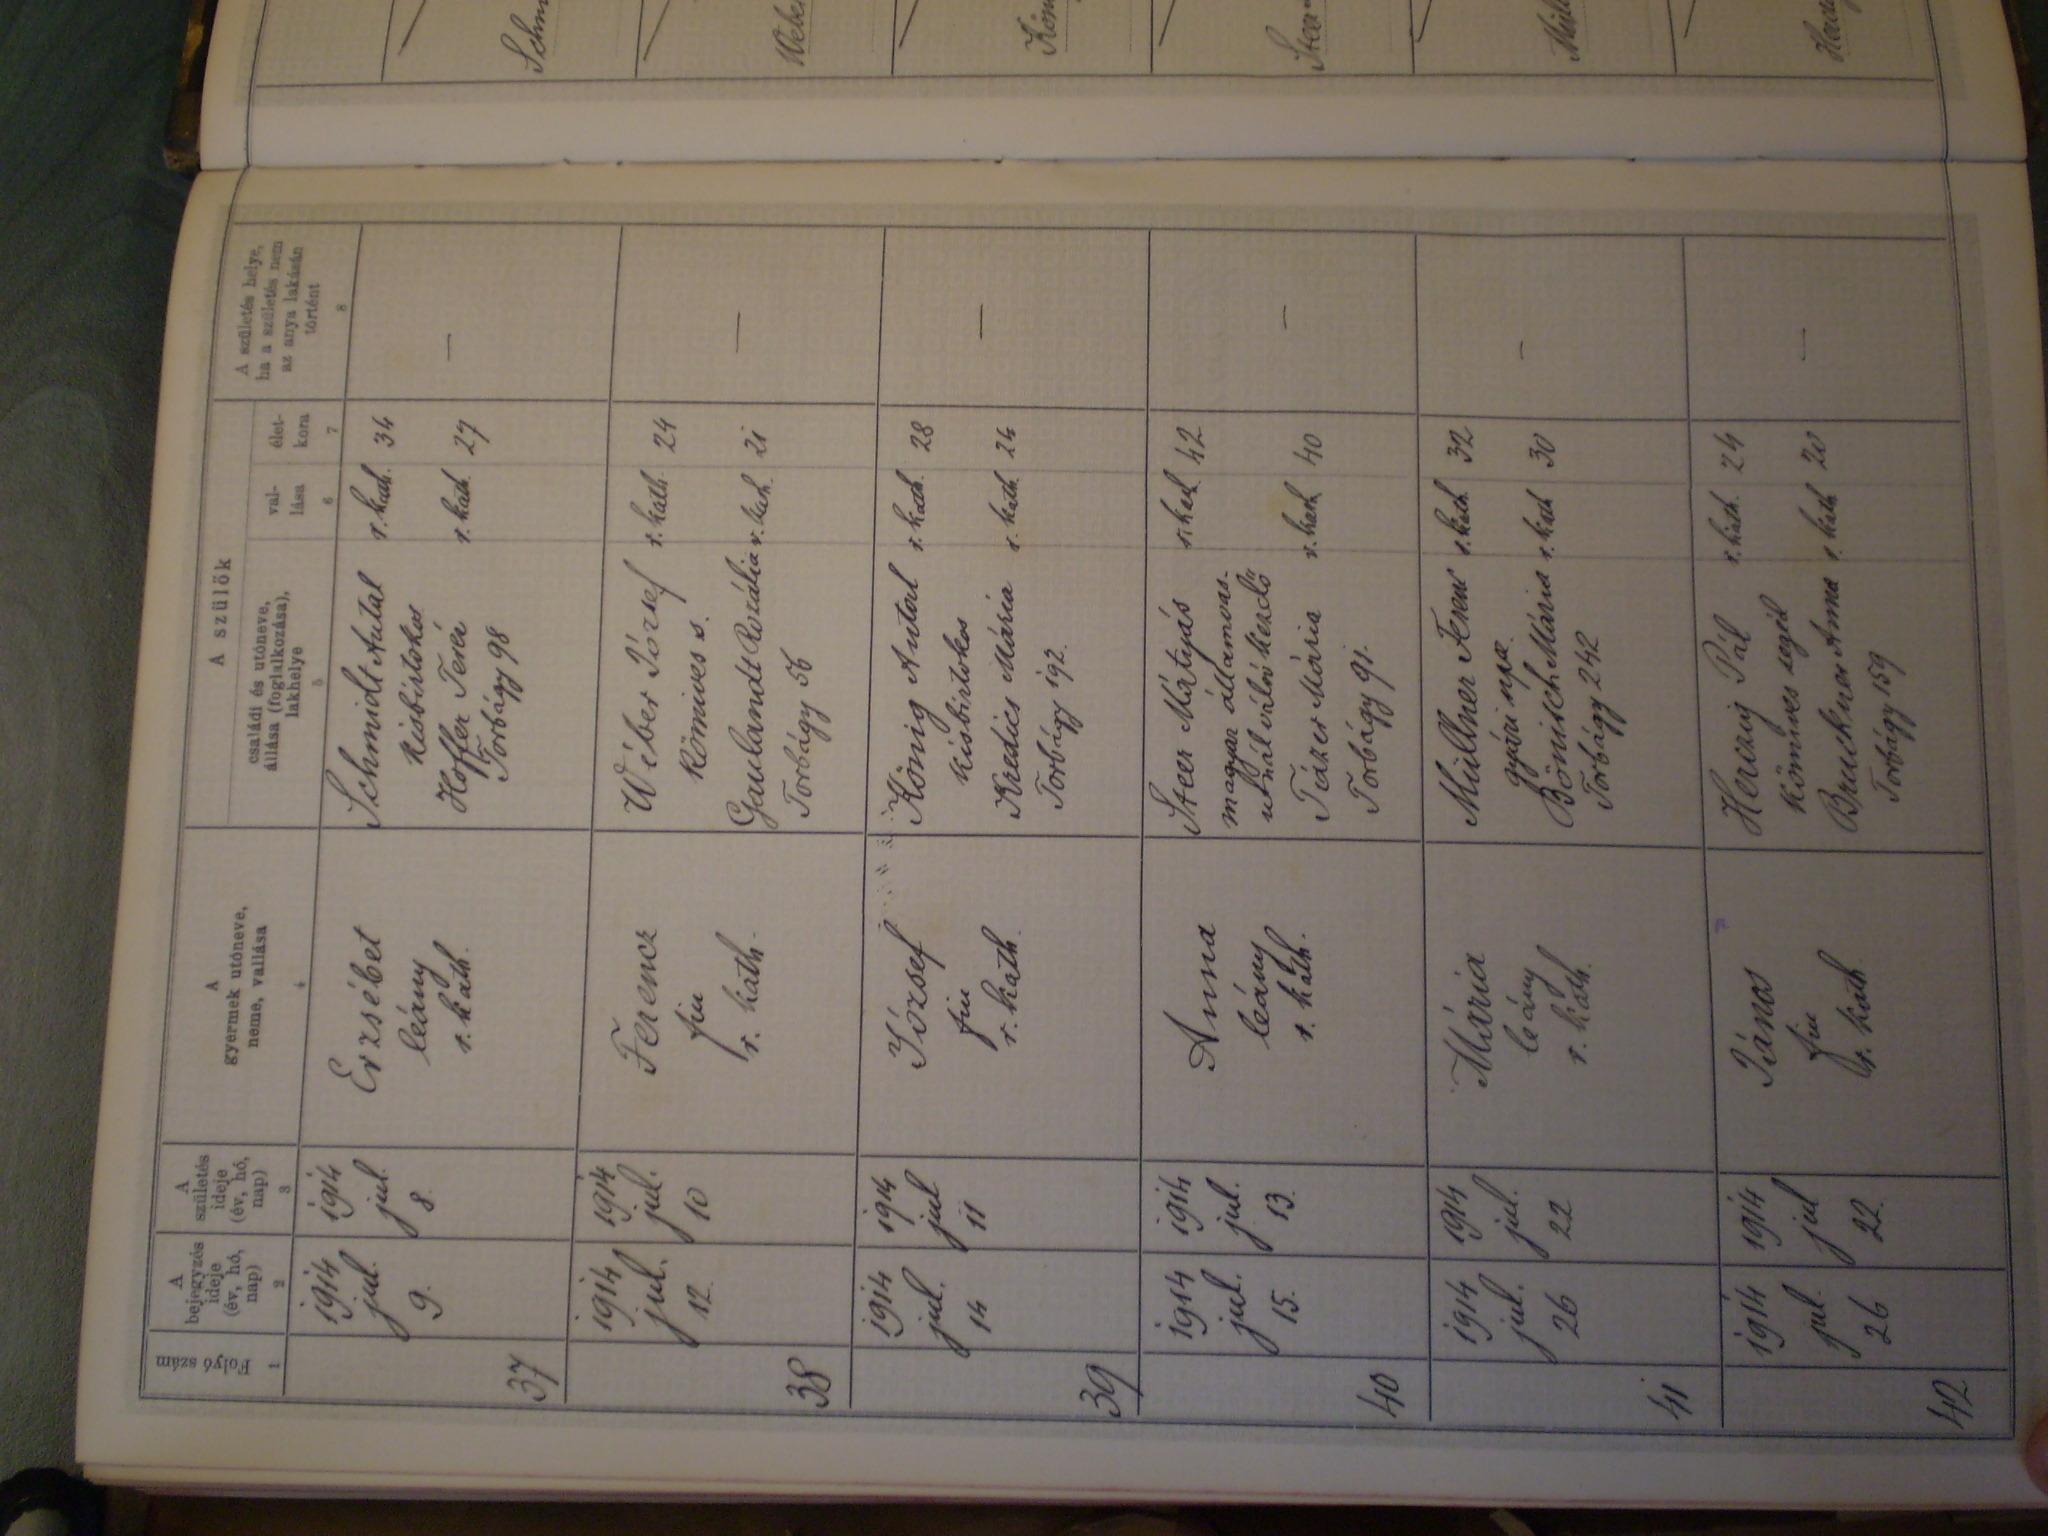 A szülők
1
Folyó szám
2
A
bejegyzés
ideje
(év, hó,
nap)
3
A
születés
ideje
(év, hó,
nap)
4
A
gyermek utóneve,
neme, vallása
5
családi és utóneve,
állása (foglalkozása),
lakhelye
6
val-
lása
7
élet-
kora
8
A születés helye,
ha a születés nem
az anya lakásán
történt
37
1914
jul.
9.
1914
jul.
8.
Erzsébet
leány
r. kath.
Schmidt Antal r. kath. 34
kisbirtokos
Hoffer Teréz r. kath. 27
Torbágy 98
—
38
1914
jul.
12.
1914
jul.
10
Ferencz
fiu
r. kath.
Wéber József r. kath. 24
kőmives s.
Gaulandt Rozália r. kath. 21
Torbágy 56
—
39
1914
jul.
14
1914
jul
11
József
fiu
r. kath.
König Antal r. kath. 28
kisbirtokos
Kredics Mária r. kath. 24
Torbágy 192.
—
40
1914
jul.
15.
1914
jul.
13.
Anna
leány
r. kath.
Steer Mátyás r. kath. 42
magyar államvas-
utnál váltó kezelő
Tázer Mária r. kath. 40
Torbágy 91.
—
41
1914
jul.
26
1914
jul.
22
Mária
leány
r. kath.
Müllner Ferenc r. kath. 32
gyári
Bönisch Mária r. kath 30
Torbágy 242
—
42
1914
jul.
26
1914
jul
22.
János
fiu
r. kath.
Herzig Pál r. kath. 24
kőmives segéd
Bruckner Anna r. kath 20
Torbágy 159
—
Schm
Webe
Kön
Steer
Müll
Herzig